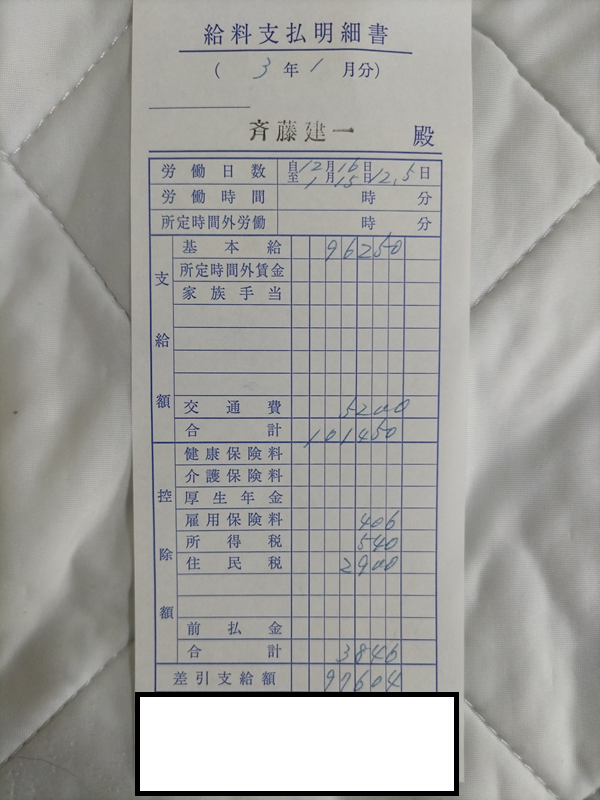 給料支払明細書
( 3年1月分)
斉藤建一 殿
労働日数 自12月16日 至1月15日 12.5日
労働時間 時 分
所定時間外労働 時 分
支給額
基本給 96250
所定時間外賃金
家族手当
交通費 5200
合計 101450
控除額
健康保険料
介護保険料
厚生年金
雇用保険料 406
所得税 540
住民税 2900
前払金
合計 3846
差引支給額 97604